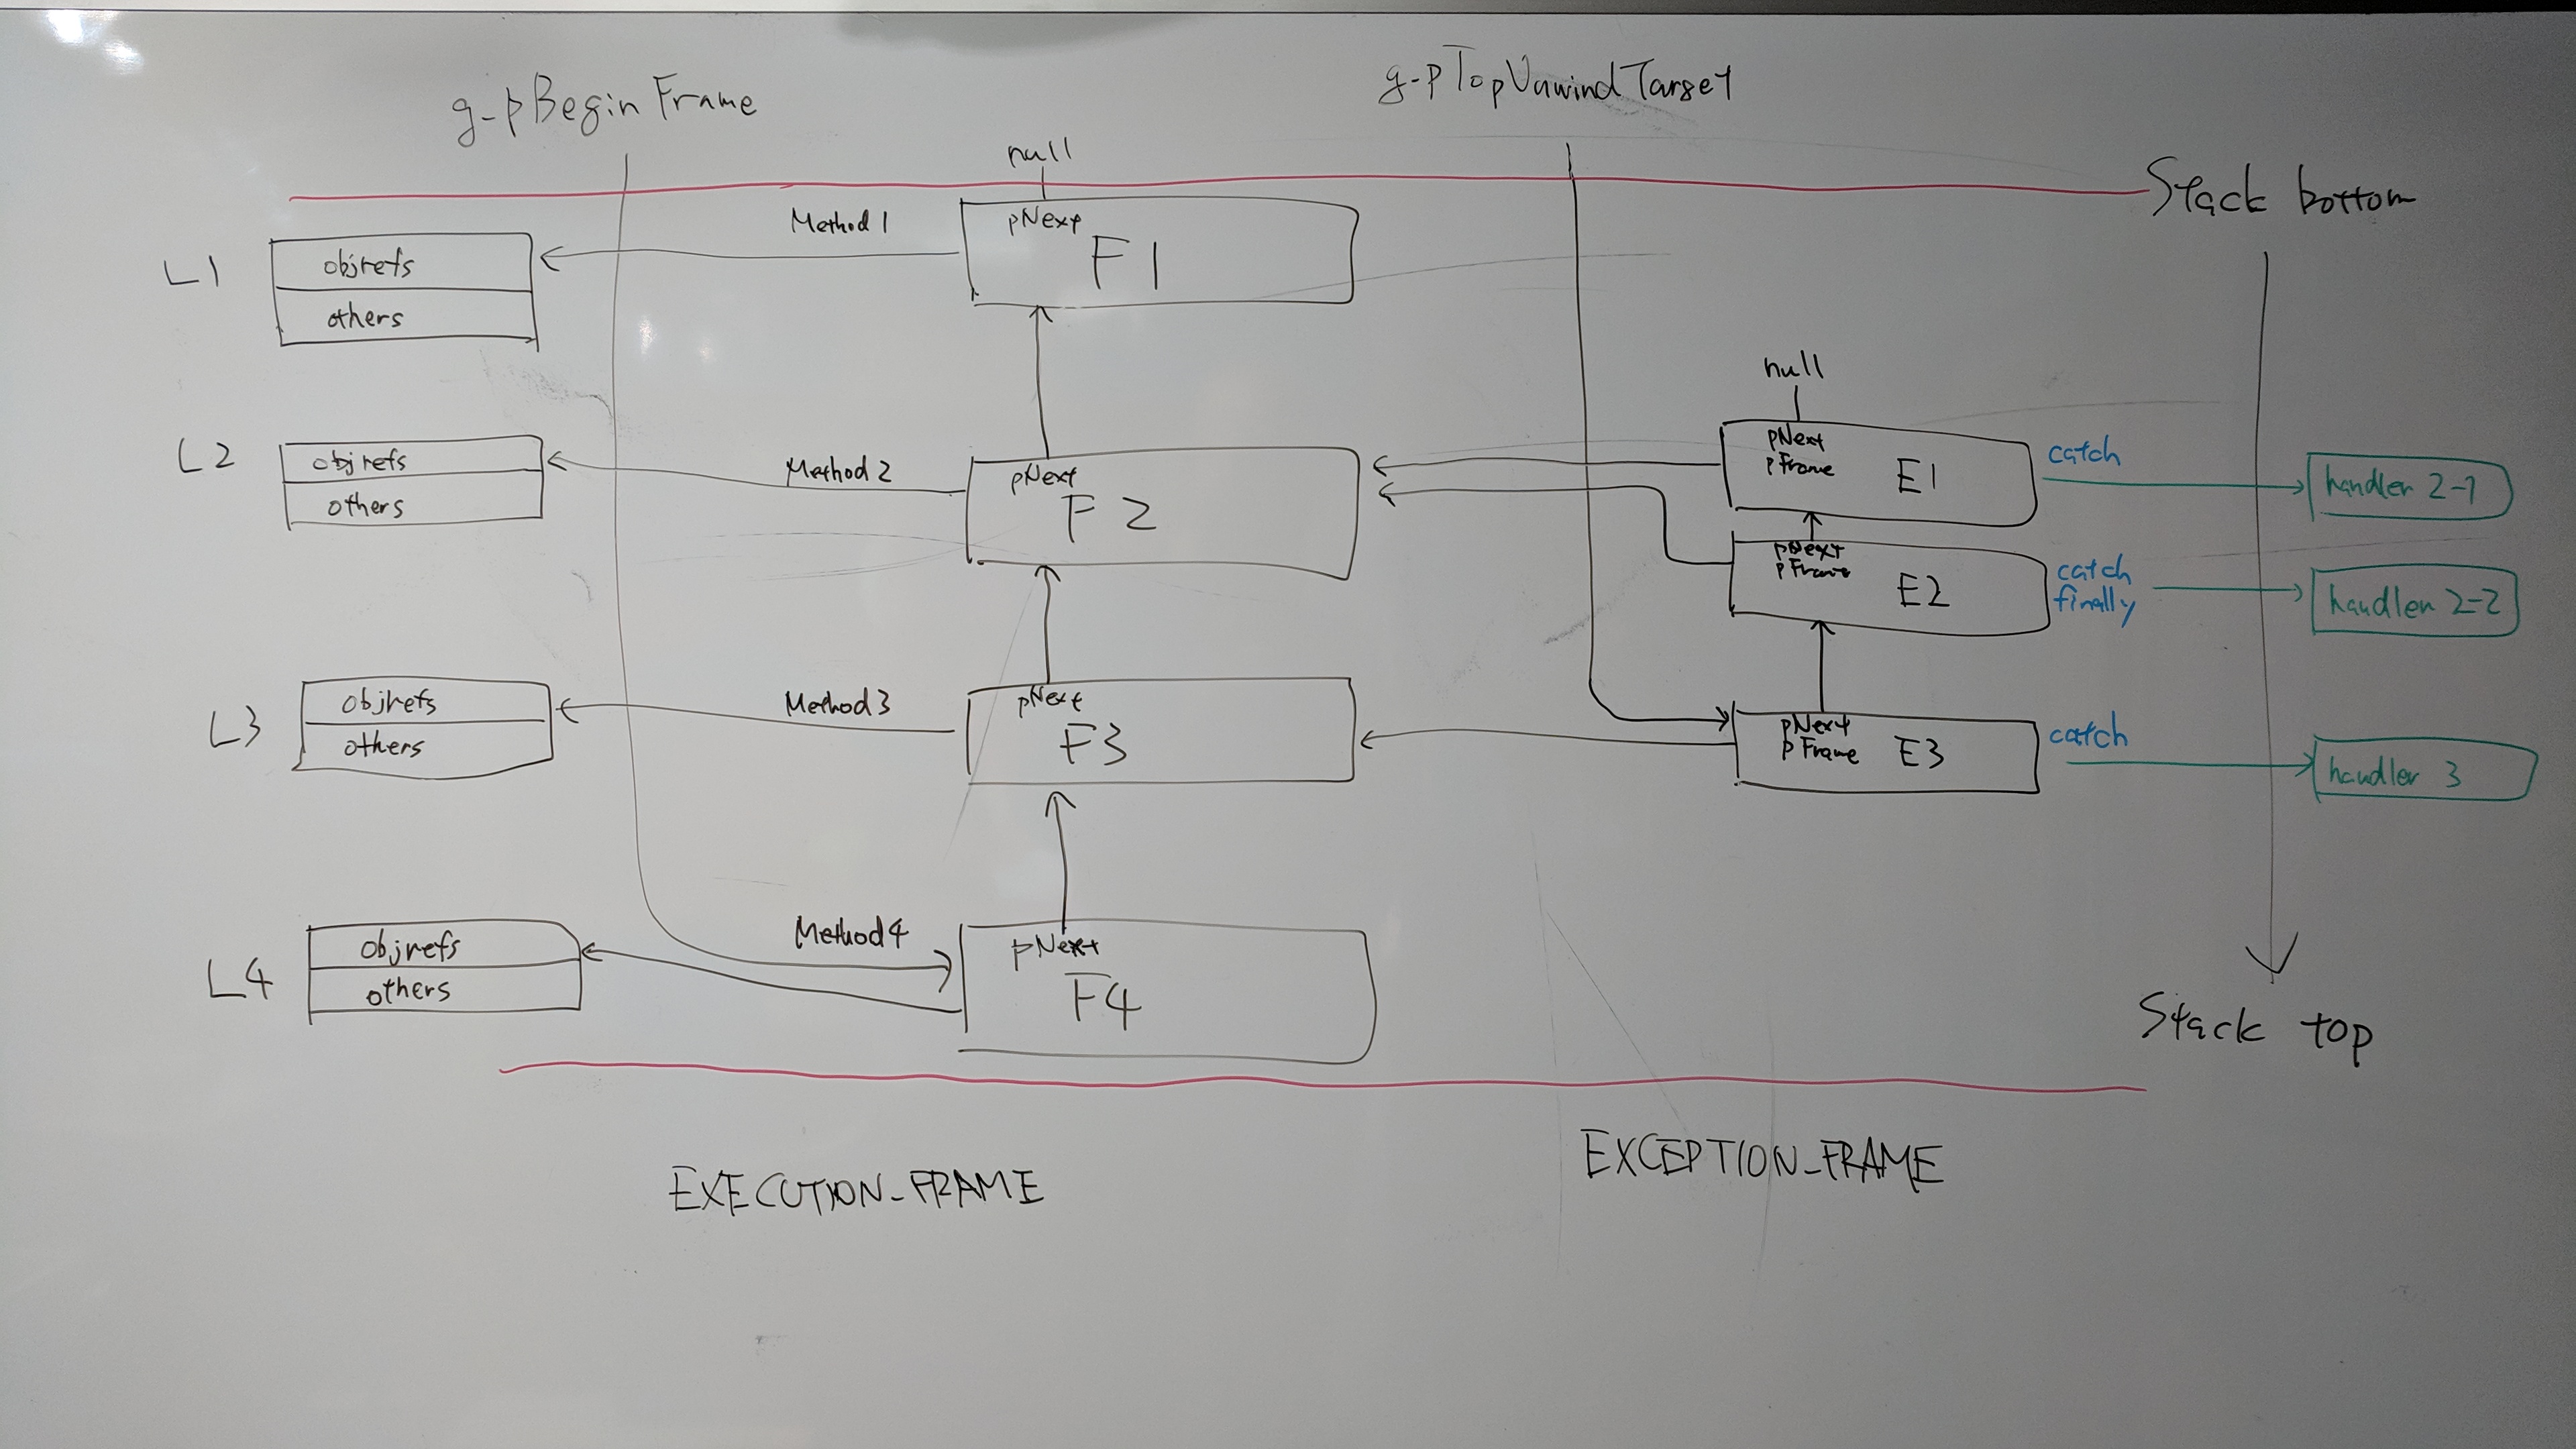 g-pBeginFrame
g-pTopUnwindTarget
null
Stack bottom
Method 1
pNext
F1
L1
objrefs
others
null
L2
objrefs
others
Method 2
pNext
F2
pNext
pFrame
E1
catch
handler 2-1
pNext
pFrame
E2
catch
finally
handler 2-2
L3
objrefs
others
Method 3
pNext
F3
pNext
pFrame
E3
catch
handler 3
L4
objrefs
others
Method 4
pNext
F4
Stack top
EXECUTION_FRAME
EXCEPTION_FRAME